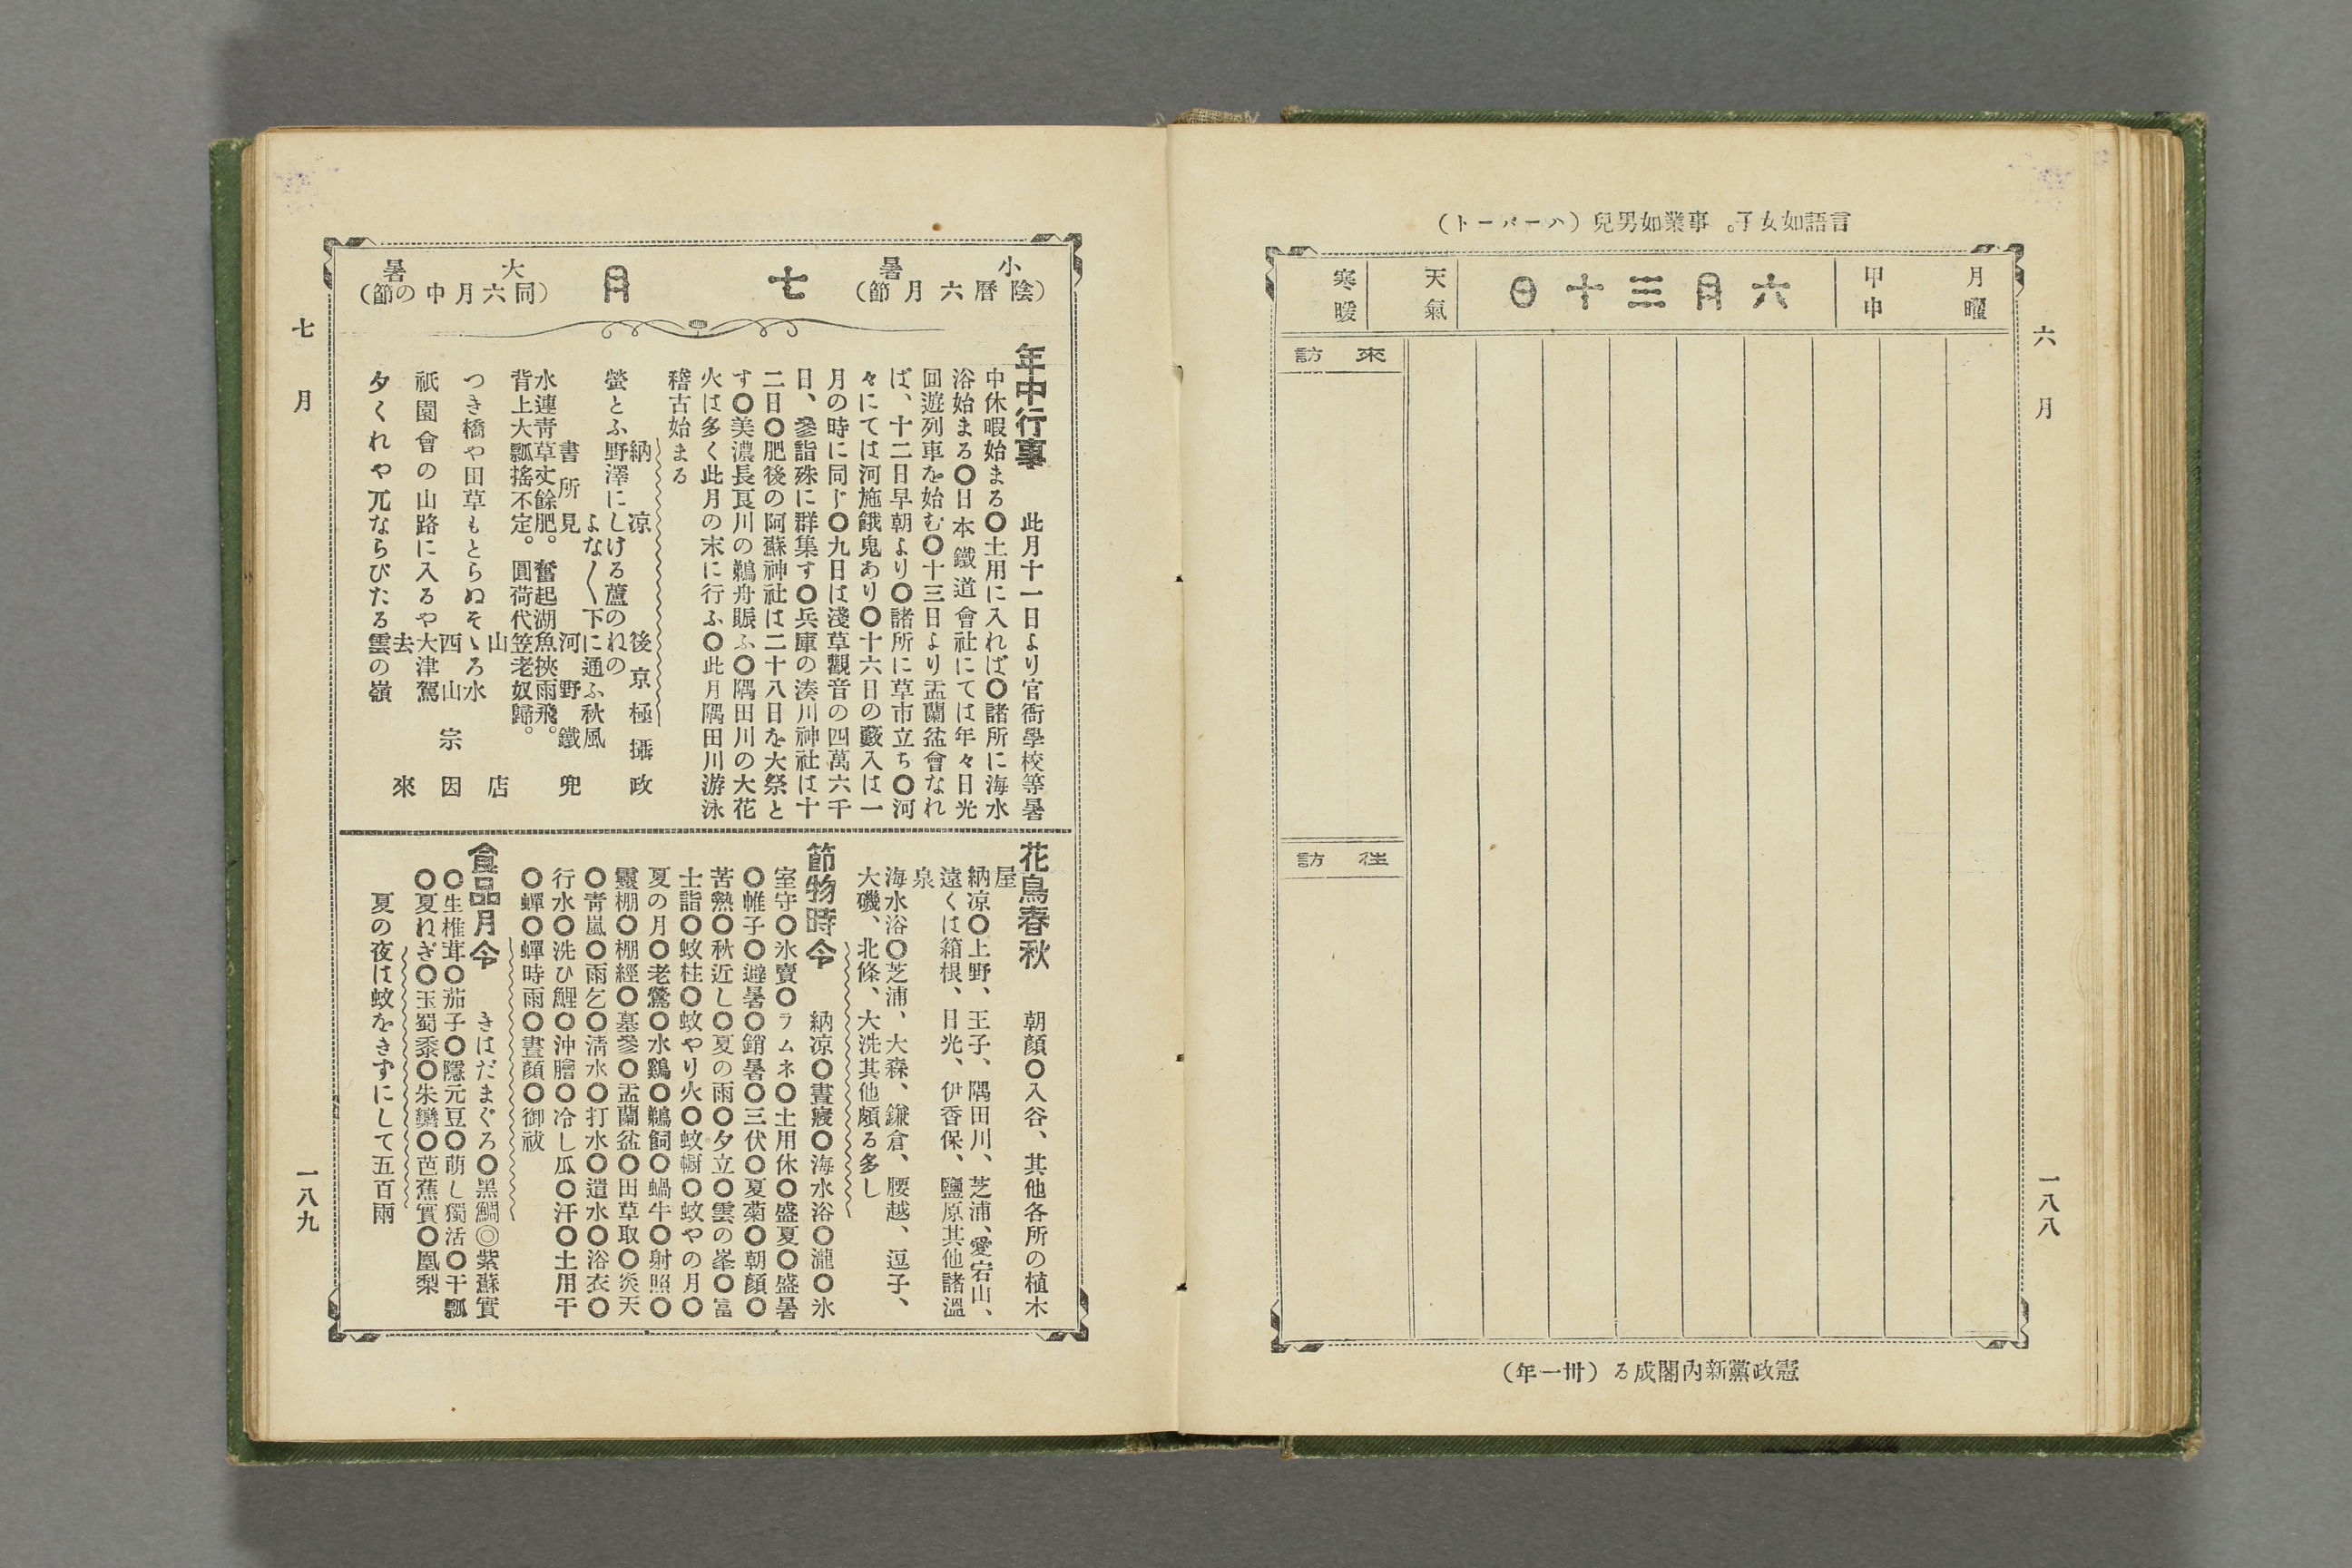 言語如女子。事業如男兒(ハーバート)
六月
月曜
甲申
六月三十日
天氣
寒暖
來訪
往訪
憲政黨新內閣成る(卅一年)
一八八
七月
小暑
(陰曆六月節)
七月
大暑
(同六月中の節)
年中行事 此月十一日より官衙學校等暑
中休暇始まる〇土用に入れば〇諸所に海水
浴始まる〇日本鐵道會社にては年々日光
回遊列車を始む〇十三日より盂蘭盆會なれ
ば、十二日早朝より〇諸所に草市立ち〇河
々にては河施餓鬼あり〇十六日の藪入は一
月の時に同じ〇九日は淺草觀音の四萬六千
日、參詣殊に群集す〇兵庫の湊川神社は十
二日〇肥後の阿蘇神社は二十八日を大祭と
す〇美濃長良川の鵜舟賑ふ〇隅田川の大花
火は多く此月の末に行ふ〇此月隅田川游泳
稽古始まる
納凉 後京極攝政
螢とふ野澤にしける蘆のねの
よな〱下に通ふ秋風
書所見 河野鐵兜
水連靑草丈餘肥。奮起湖魚挾雨飛。
背上大瓢搖不定。圓荷代笠老奴歸。
山店
つき橋や田草もとらぬそゝろ水
西山宗因
祇園會の山路に入るや大津駕
去來
夕くれや兀ならびたる雲の嶺
花鳥春秋 朝顏〇入谷、其他各所の植木
屋
納凉〇上野、王子、隅田川、芝浦、愛宕山、
遠くは箱根、日光、伊香保、鹽原其他諸溫
泉
海水浴〇芝浦、大森、鎌倉、腰越、逗子、
大磯、北條、大洗其他頗る多し
節物時令 納凉〇晝寢〇海水浴〇瀧〇氷
室守〇氷賣〇ラムネ〇土用休〇盛夏〇盛暑
〇帷子〇避暑〇銷暑〇三伏〇夏菊〇朝顏〇
苦熱〇秋近し〇夏の雨〇夕立〇雲の峯〇富
士詣〇蚊柱〇蚊やり火〇蚊㡡〇蚊やの月〇
夏の月〇老鶯〇水鷄〇鵜飼〇蝸牛〇射照〇
靈棚〇棚經〇墓參〇盂蘭盆〇田草取〇炎天
〇靑嵐〇雨乞〇淸水〇打水〇遣水〇浴衣〇
行水〇洗ひ鯉〇沖膾〇冷し瓜〇汗〇土用干
〇蟬〇蟬時雨〇晝顏〇御祓
食品月令 きはだまぐろ〇黑鯛◎紫蘇實
〇生椎茸〇茄子〇隱元豆〇萌し獨活〇干瓢
〇夏ねぎ〇玉蜀黍〇朱欒〇芭蕉實〇鳳梨
夏の夜は蚊をきずにして五百兩
七月
一八九